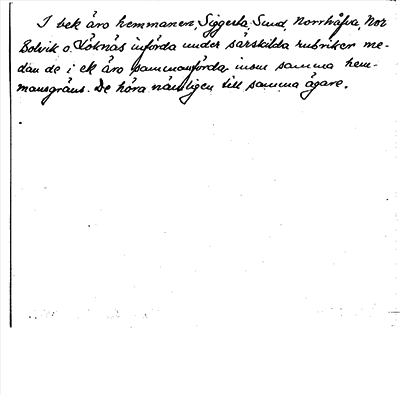 I bek äro hemmanen, Siggesta, Sund, Norrhåfva, Nor
Bolvik o. Löknäs införda under särskilda rubriker me-
dan de i ek äro sammanförda inom samma hem-
mansgräns. De höra nämligen till samma ägare.